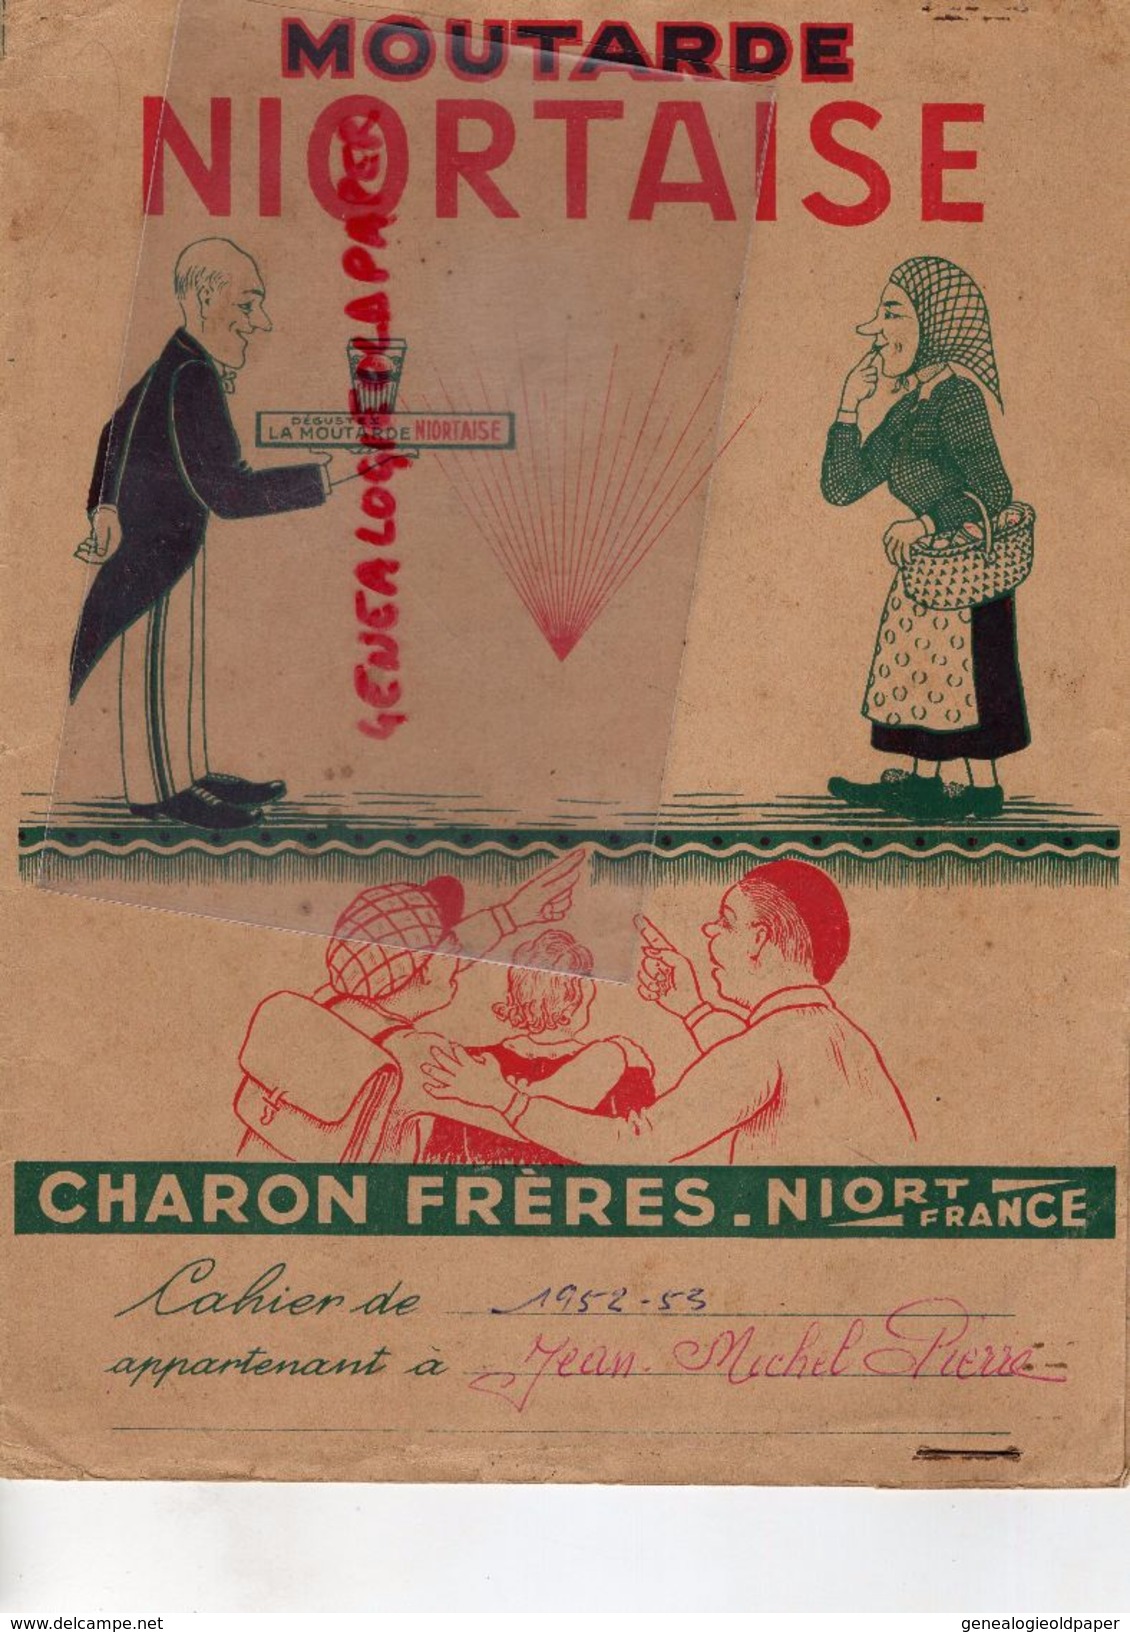 MOUTARDE
NIORTAISE
GENEALOGIEOLDPAPER
DÉGUSTEZ
LA MOUTARDE NIORTAISE
CHARON FRÈRES. NIORT FRANCE
Cahier de 1952-53
appartenant à Jean-Michel Pierre
delcampe.net
genealogieoldpaper